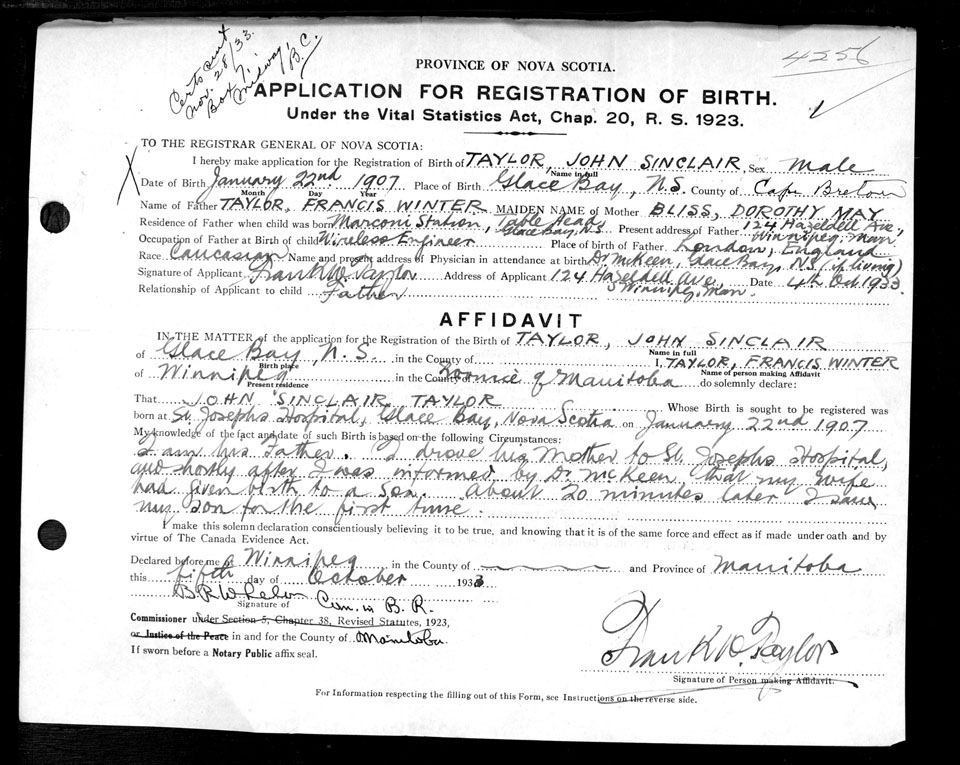 Certs sent
Nov. 28/33.
Box 7,
Midway,
B.C.
4256
PROVINCE OF NOVA SCOTIA.
APPLICATION FOR REGISTRATION OF BIRTH.
Under the Vital Statistics Act, Chap. 20, R. S. 1923.
TO THE REGISTRAR GENERAL OF NOVA SCOTIA:
I hereby make application for the Registration of Birth of TAYLOR, JOHN SINCLAIR, Sex Male
Name in full
Date of Birth January 22nd 1907 Place of Birth Glace Bay, N.S. County of Cape Breton
Month Day Year
Name of Father TAYLOR, FRANCIS WINTER MAIDEN NAME of Mother BLISS, DOROTHY MAY
Residence of Father when child was born Marconi Station, Table Head, Glace Bay, N.S. Present address of Father 124 Hazeldell Ave., Winnipeg, Man.
Occupation of Father at Birth of child Wireless Engineer Place of birth of Father London, England
Race Caucasian Name and present address of Physician in attendance at birth Dr McKeen, Glace Bay, N.S. (if living)
Signature of Applicant Frank W. Taylor Address of Applicant 124 Hazeldell Ave., Winnipeg, Man. Date 4th Oct 1933.
Relationship of Applicant to child Father
AFFIDAVIT
IN THE MATTER of the application for the Registration of the Birth of TAYLOR, JOHN SINCLAIR
Name in full
of Glace Bay, N.S. in the County of I, TAYLOR, FRANCIS WINTER
Birth place Name of person making Affidavit
of Winnipeg in the County of Province of Manitoba do solemnly declare:
Present residence
That JOHN SINCLAIR TAYLOR Whose Birth is sought to be registered was
born at St. Josephs Hospital, Glace Bay, Nova Scotia on January 22nd 1907
My knowledge of the fact and date of such Birth is based on the following Circumstances:
I am his Father. I drove his Mother to St. Josephs Hospital,
and shortly after I was informed by Dr McKeen, that my wife
had given birth to a son. About 20 minutes later I saw
my son for the first time.
I make this solemn declaration conscientiously believing it to be true, and knowing that it is of the same force and effect as if made under oath and by
virtue of The Canada Evidence Act.
Declared before me at Winnipeg in the County of and Province of Manitoba
this fifth day of October 1933
Com. in B. R.
Signature of
Commissioner under Section 5, Chapter 38, Revised Statutes, 1923,
or Justice of the Peace in and for the County of Manitoba
If sworn before a Notary Public affix seal.
Frank W. Taylor
Signature of Person making Affidavit.
For Information respecting the filling out of this Form, see Instructions on the reverse side.